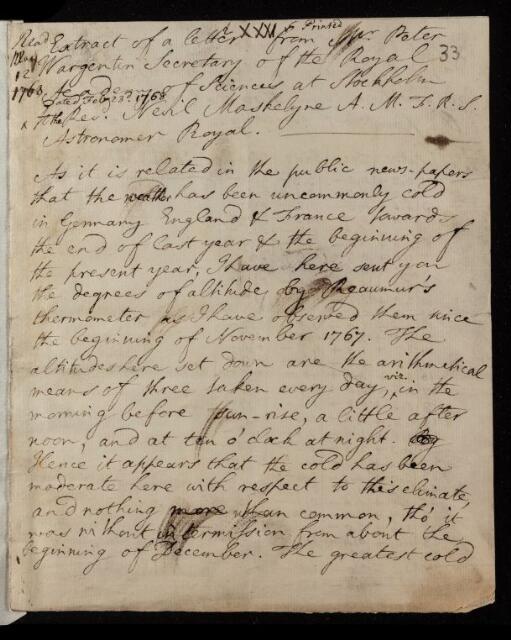 XXXI Printed
Read Extract of a letter from Mr. Peter
May Wargentin Secretary of the Royal 33
12 Academy of Sciences at Stockholm
1768. Dated Feb. 23d. 1768
x to the Rev. Nevil Maskelyne A. M. F. R. S.
Astronomer Royal.
As it is related in the public news-papers
that the weather has been uncommonly cold
in Germany England & France towards
the end of last year & the beginning of
the present year, I have here sent you
the degrees of altitude by Reaumur's
thermometer as I have observed them since
the beginning of November 1767. The
altitudes here set down are the arithmetical
means of three taken every day, viz. in the
morning before sun-rise, a little after
noon, and at ten o'clock at night.
Hence it appears that the cold has been
moderate here with respect to this climate,
and nothing more than common, tho' it
was without intermission from about the
beginning of December. The greatest cold